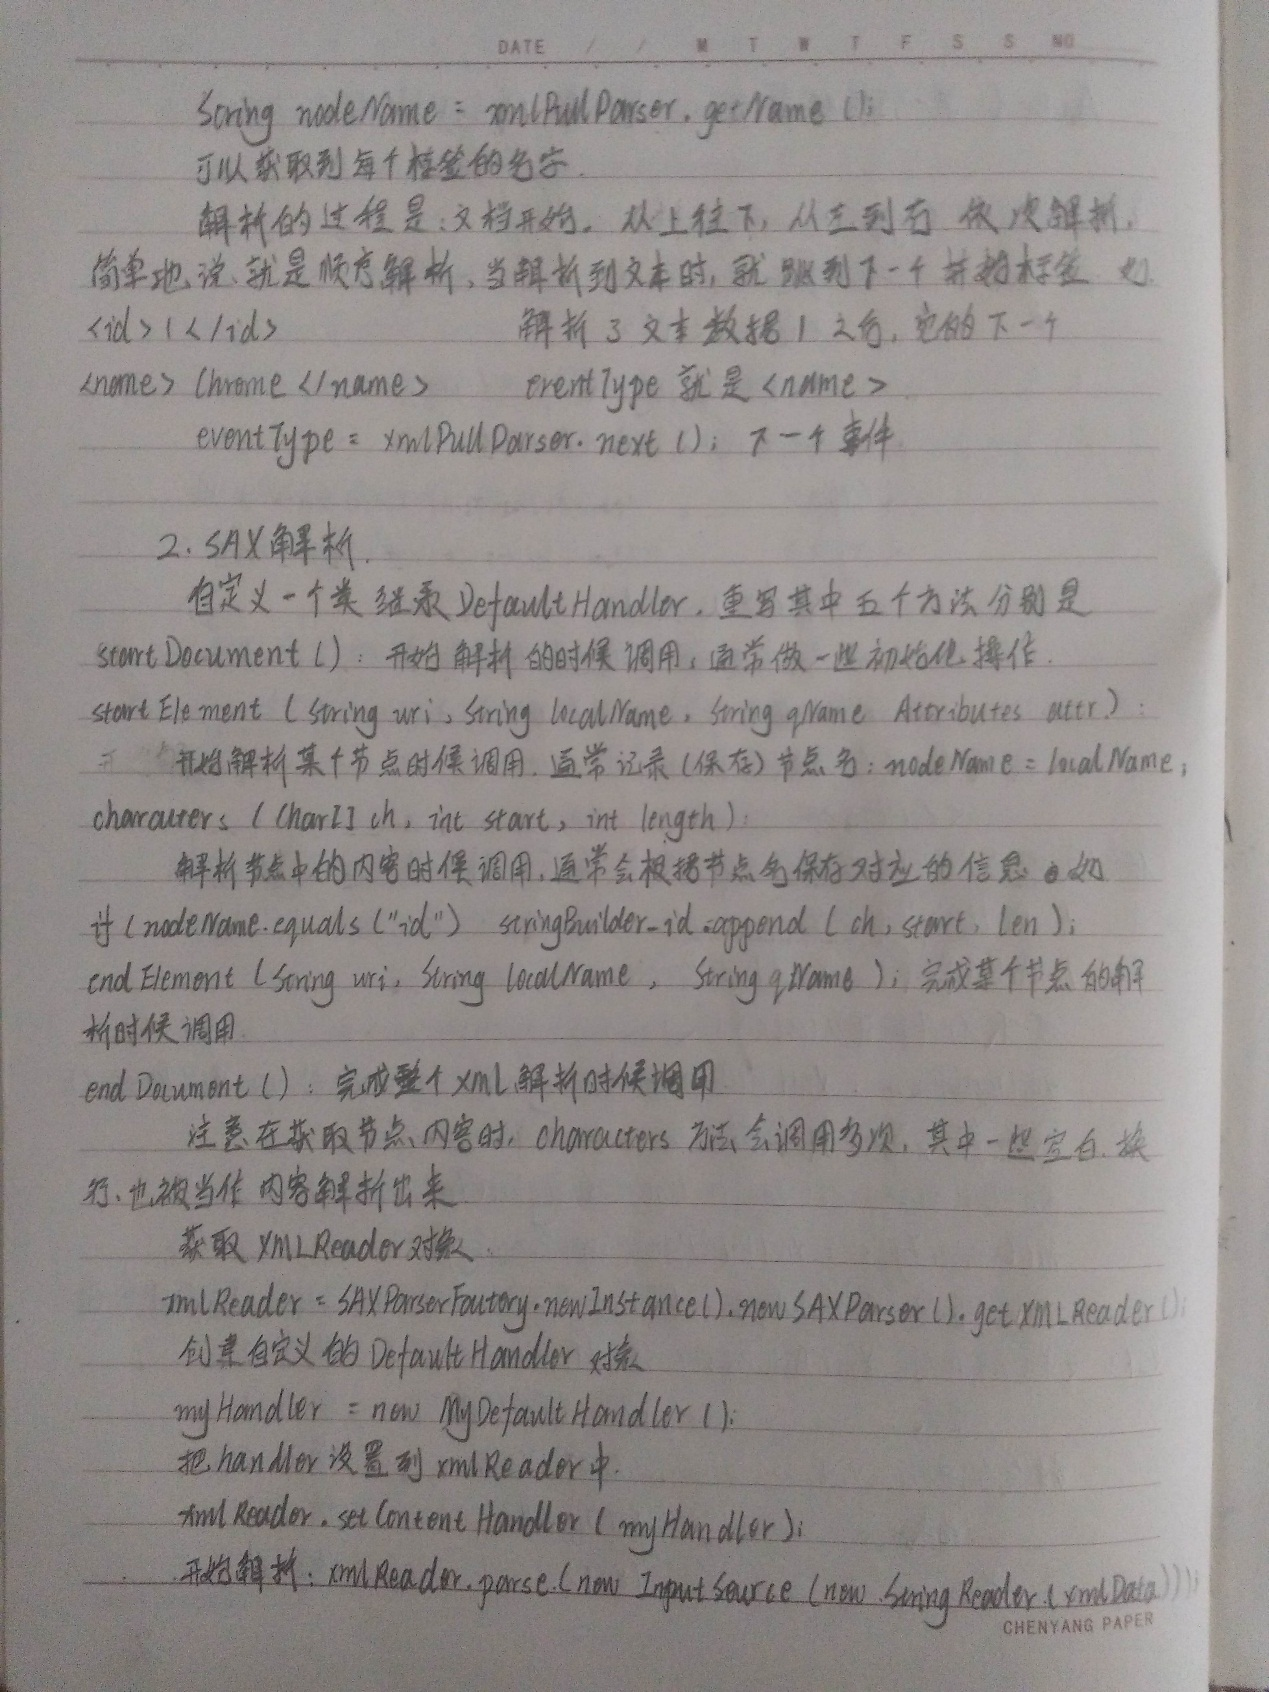 DATE / / M T W T F S S NO
String nodeName = xmlPullParser.getName ();
可以获取到每个标签的名字.
解析的过程是:文档开始。从上往下,从左到右 依次解析,
简单地说、就是顺序解析、当解析到文本时,就跳到下一个 标签 如
<id>1</id> 解析了文本数据1之后,它的下一个
<name> Chrome </name> eventType 就是<name>
eventType = xmlPullParser.next (); 下一个事件
2. SAX解析.
自定义一个类 继承 DefaultHandler. 重写其中五个方法分别是
startDocument (): 开始解析的时候调用,通常做一些初始化操作.
startElement (String uri, String localName, String qName Attributes attr.):
开始解析某个节点时候调用.通常记录(保存)节点名:nodeName = localName;
characters (Char[] ch, int start, int length):
解析节点中的内容时候调用.通常会根据节点名保存对应的信息。如
if (nodeName.equals ("id") stringBuilder_id.append (ch, start, len);
endElement (String uri, String localName, String qName); 完成某个节点的解
析时候调用.
endDocument (): 完成整个xml解析时候调用
注意在获取节点内容时, characters 方法会调用多次,其中一些空白、换
行、也被当作内容解析出来
获取 XMLReader对象.
xmlReader = SAXParserFactory.newInstance().newSAXParser().getXMLReader();
创建自定义的DefaultHandler 对象
myHandler = new MyDefaultHandler ();
把handler设置到xmlReader中.
xmlReader.setContentHandler (myHandler);
开始解析:xmlReader.parse.(new InputSource (new StringReader (xmlData)));
CHENYANG PAPER